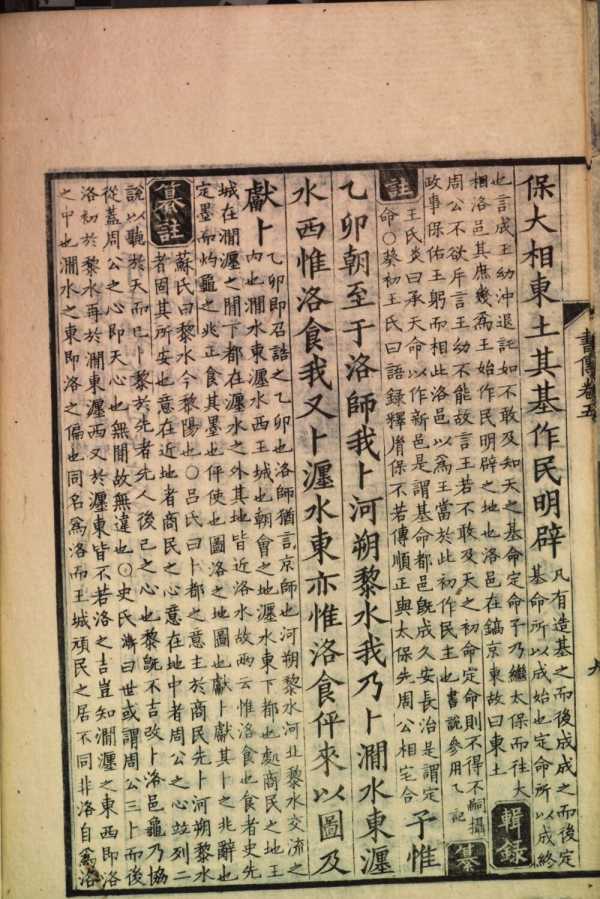 書傳卷五
九
保大相東土其基作民明辟
凡有造基之而後成成之而後定
基命所以成始也定命所以成終
也言成王幼沖退託如不敢及知天之基命定命予乃繼太保而往大
相洛邑其庶幾為王始作民明辟之地也洛邑在鎬京東故曰東土
輯録
周公不欲斥言王幼不能故言王若不敢及天之初命定命則不得不嗣攝
政事保佑王躬而相此洛邑以為王當於此初作民主也書說參用乙記
纂
註
王氏炎曰承天命以作新邑是謂基命都邑旣成久安長治是謂定
命○葵初王氏曰語錄釋胥保不若傳順正與太保先周公相定合
予惟
乙卯朝至于洛師我卜河朔黎水我乃卜澗水東瀍
水西惟洛食我又卜瀍水東亦惟洛食伻來以圖及
獻卜
乙卯即召誥之乙卯也洛師猶言京師也河朔黎水河北黎水交流之
内也澗水東瀍水西王城也朝會之地瀍水東下都也處商民之地王
城在澗瀍之閒下都在瀍水之外其地皆近洛水故兩云惟洛食也食者史先
定墨而灼龜之兆正食其墨也伻使也圖洛之地圖也獻卜獻其卜之兆辭也
纂註
蘇氏曰黎水今黎陽也○呂氏曰卜都之意主於商民先卜河朔黎水
者因其所安也意在近地者商民之心意在地中者周公之心竝列二
說以聽於天而已卜黎於先者先人後己之心也黎旣不吉改卜洛邑龜乃協
從蓋周公之心即天心也無閒故無違也○史氏漸曰世或謂周公三卜而後
洛初於黎水再於澗東瀍西又於瀍東皆不若洛之吉豈知澗瀍之東西即洛
之中也澗水之東即洛之偏也同名為洛而王城頑民之居不同非洛自為洛